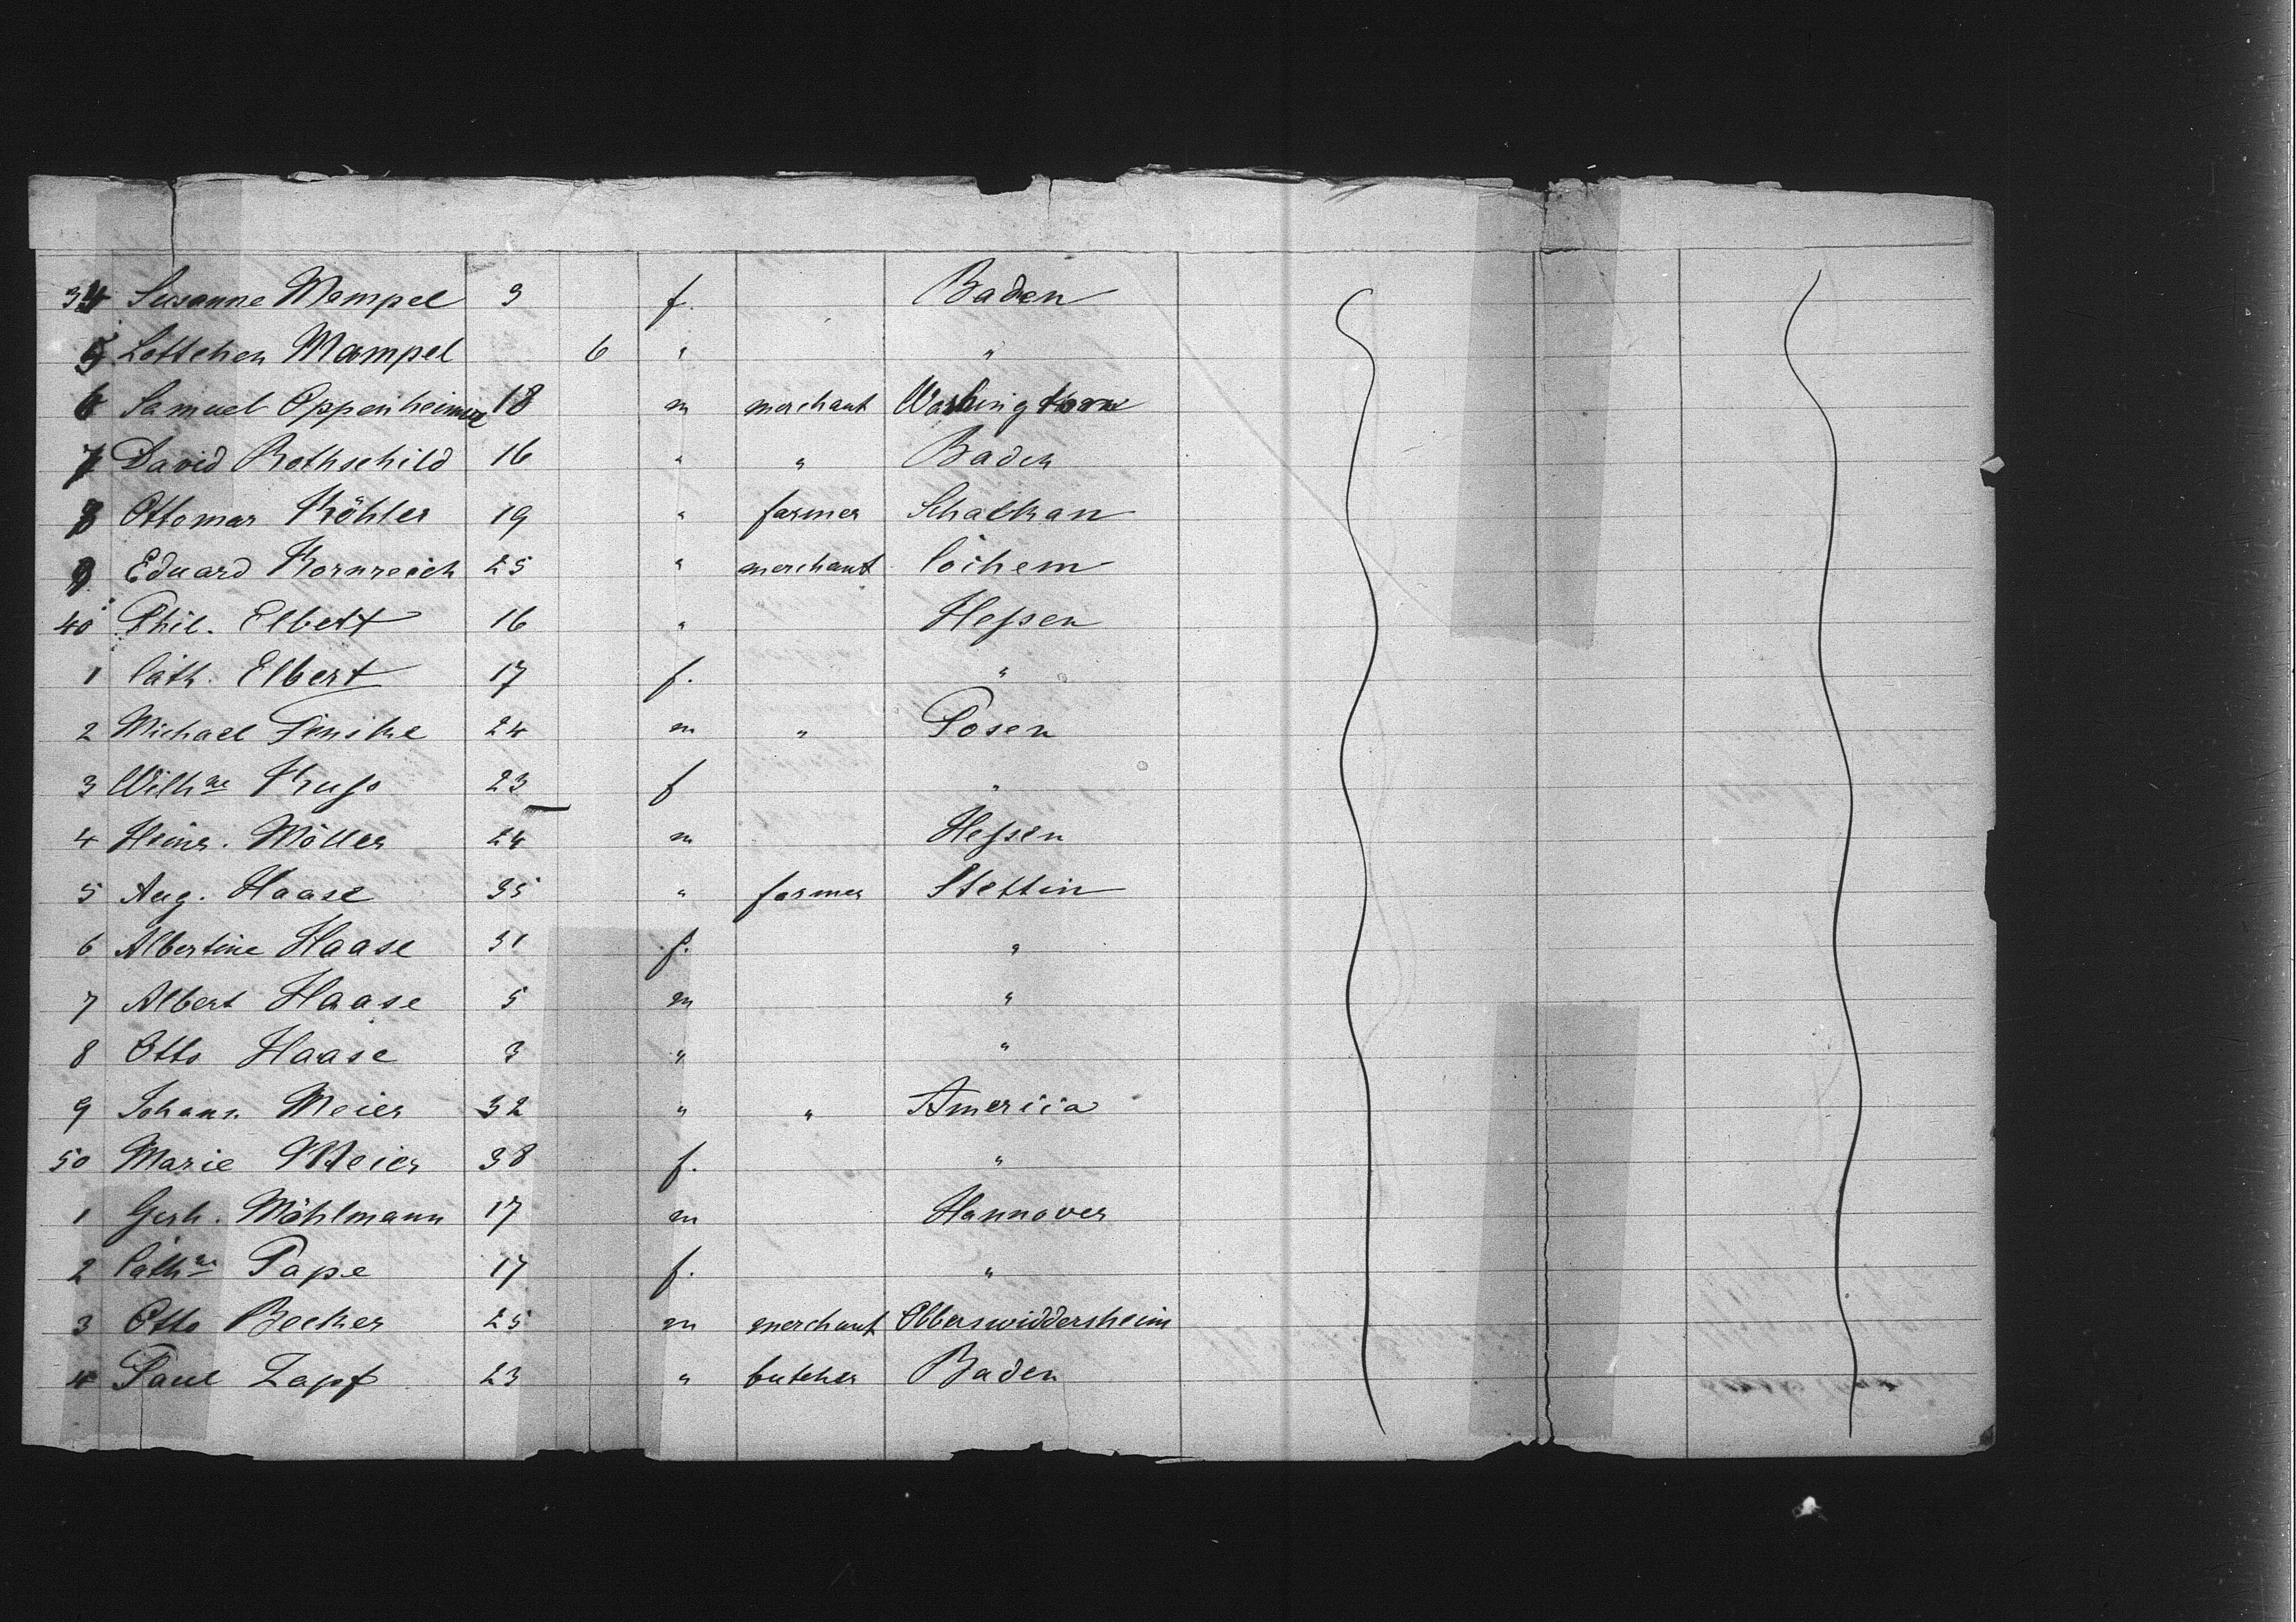 34 Susanne Mampel 3 f. Baden
5 Lottchen Mampel 6 " "
6 Samuel Oppenheimer 18 m merchant Washington
7 David Rothschild 16 " " Baden
8 Ottomar Köhler 19 " farmer Schalkau
9 Eduard Kornreich 25 " merchant Cochem
40 Phil. Elbert 16 " Heſsen
1 Cath. Elbert 17 f. "
2 Michael Finske 24 m " Posen
3 Wilhne Kuſs 23 f "
4 Heinr. Möller 24 m Heſsen
5 Aug. Haase 35 " farmer Stettin
6 Albertine Haase 31 f. "
7 Albert Haase 5 m "
8 Otto Haase 3 " "
9 Johann Meier 32 " " America
50 Marie Meier 38 f. "
1 Gerh. Möhlmann 17 m Hannover
2 Cathne Pape 17 f. "
3 Otto Becker 25 m merchant Oberwiddersheim
4 Paul Zapf 23 " butcher Baden